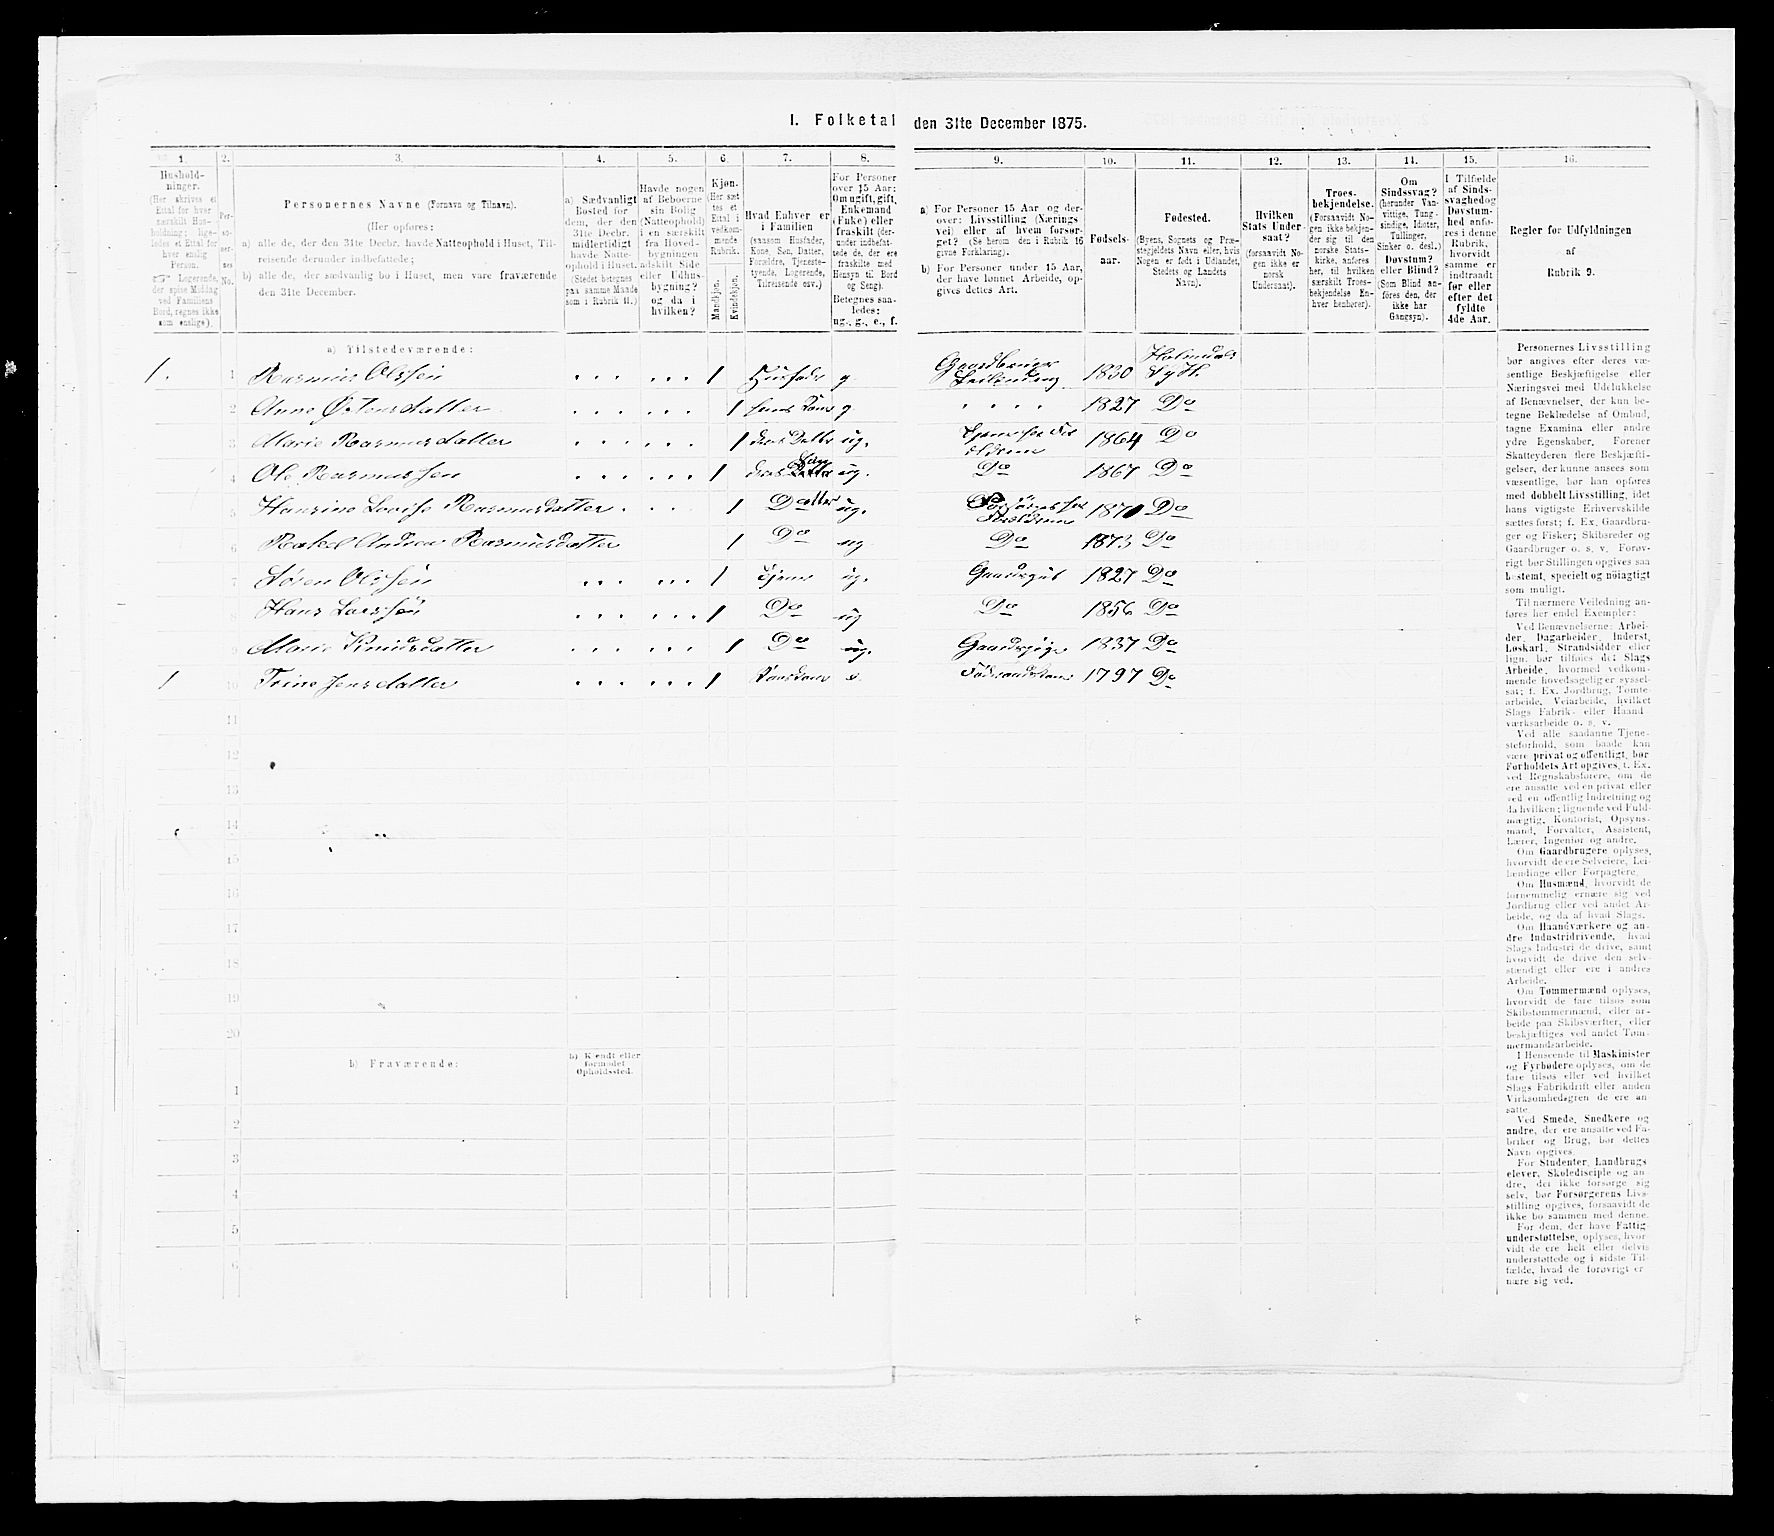 I. Folketal den 31te December 1875.
1. 2. 3. 4. 5. 6. 7. 8. 9. 10. 11. 12. 13. 14. 15. 16.
Hushold-
ninger.
(Her skrives et
Ettal for hver
særskilt Hus-
holdning; lige-
ledes et Ettal for
hver enslig
Person.
☞ Logerende,
der spise Middag
ved Familiens
Bord, regnes ikke
som enslige).
Per-
so-
ner-
nes
No.
Personernes Navne (Fornavn og Tilnavn).
(Her opføres:
a) alle de, der den 31te Decbr. havde Natteophold i Huset, Til-
reisende derunder indbefattede;
b) alle de, der sædvanlig bo i Huset, men vare fraværende
den 31te December.
a) Sædvanligt
Bosted for
dem, der den
31te Decbr.
midlertidigt
havde Natte-
ophold i Huset.
(Stedet betegnes
paa samme Maade
som i Rubrik 11.)
Havde nogen
af Beboerne
sin Bolig
(Natteophold)
i en særskilt
fra Hoved-
bygningen
adskilt Side
eller Udhus-
bygning?
og da i
hvilken?
Kjøn.
(Her sæt-
tes et
Ettal i
vedkom-
mende
Rubrik.
Mandkjøn.
Kvindekjøn.
Hvad Enhver er
i Familien
(saasom Husfader,
Kone, Søn, Datter,
Forældre, Tjeneste-
tyende, Logerende,
Tilreisende osv.)
For Personer
over 15 Aar:
Om ugift, gift,
Enkemand
(Enke) eller
fraskilt (der-
under indbefat-
tede de, der ere
fraskilte med
Hensyn til Bord
og Seng).
Betegnes saa-
ledes:
ug., g., e., f.
a) For Personer 15 Aar og der-
over: Livsstilling (Nærings
vei) eller af hvem forsør-
get? (Se herom den i Rubrik 16
givne Forklaring).
b) For Personer under 15 Aar,
der have lønnet Arbeide, op-
gives dettes Art.
Fødsels-
aar.
Fødested.
(Byens, Sognets og Præ-
stegjeldets Navn eller, hvis
Nogen er født i Udlandet,
Stedets og Landets
Navn).
Hvilken
Stats Under-
saat?
(forsaavidt No-
gen ikke er
norsk
Undersaat).
Troes-
bekjendelse.
(Forsaavidt No-
gen ikke bekjen-
der sig til den
norske Stats-
kirke, anføres
her, til hvilken
særskilt Troes-
bekjendelse En-
hver henhører).
Om
Sindssvag?
(herunder Van-
vittige, Tung-
sindige, Idioter,
Tullinger,
Sinker o. desl.)
Døvstum?
eller Blind?
(Som Blind an-
føres den, der
ikke har
Gangsyn).
I Tilfælde
af Sinds-
svaghed og
Døvstum-
hed anfø-
res i denne
Rubrik,
hvorvidt
samme er
indtraadt
før eller
efter det
fyldte
4de Aar.
Regler for Udfyldningen
af
Rubrik 9.
a) Tilstedeværende:
1. 1 Rasmus Olssen 1 Husfader g Gaardbruger Leilending 1830
2 Anne Østensdatter 1 hans Kone g 1827 Do
3 Marie Rasmusdatter 1 deres Datter ug. 1864 Do
4 Ole Rasmussen 1 deres Søn ug. Do 1867 Do
5 Hansine Lovise Rasmusdatter 1 Datter ug. Forsørges ser Forældrene 1870 Do
6 Rakel Andrea Rasmusdatter 1 Do ug Do 1873 Do
7 Søren Olssen 1 Tjener ug. Gaardsgut 1827 Do
8 Hans Larssen 1 Do ug Do 1856 Do
9 Marie Knudsdatter 1 Do ug. Gaardspige 1837 Do
1 10 Jensdatter 1 e. 1797 Do
11
12
13
14
15
16
17
18
19
20
b) Fraværende:
b) Kjendt eller
formodet
Opholdssted.
1
2
3
4
5
6
Personernes Livsstilling
bør angives efter deres væ-
sentlige Beskjæftigelse eller
Næringsvei med Udelukkelse
af Benævnelser, der kun be-
tegne Beklædelse af Ombud,
tagne Examina eller andre
ydre Egenskaber. Forener
Skatteyderen flere Beskjæfti-
gelser, der kunne ansees som
væsentlige, bør han opføres
med dobbelt Livsstilling, idet
hans vigtigste Erhvervskilde
sættes først; f. Ex. Gaardbru-
ger og Fisker; Skibsreder og
Gaardbruger o. s. v. Forøv-
rigt bør Stillingen opgives saa
bestemt, specielt og nøiagtigt
som muligt.
Til nærmere Veiledning an-
føres her endel Exempler:
Ved Benævnelserne: Arbei-
der, Dagarbeider, Inderst,
Løskarl, Strandsidder eller
lign. bør tilføies det Slags
Arbeide, hvormed vedkom-
mende hovedsagelig er syssel-
sat; f. Ex. Jordbrug, Tomte-
arbeide, Veiarbeide, hvilket
Slags Fabrik- eller Haand-
værksarbeide o. s. v.
Ved alle saadanne Tjene-
steforhold, som baade kan
være privat og offentligt, bør
Forholdets Art opgives, t. Ex.
ved Regnskabsførere, om de
ere ansatte ved en privat eller
ved en offentlig Indretning og
da hvilken; lignende ved Fuld-
mægtig, Kontorist, Opsyns-
mand, Forvalter, Assistent,
Lærer, Ingeniør og andre.
Om Gaardbrugere oplyses,
hvorvidt de ere Selveiere, Lei-
lændinge eller Forpagtere.
Om Husmænd, hvorvidt de
fornemmelig ernære sig ved
Jordbrug eller ved andet Ar-
beide, og da af hvad Slags.
Om Haandværkere og an-
dre Industridrivende, hvad
Slags Industri de drive, samt
hvorvidt de drive den selv-
stændigt eller ere i andres
Arbeide.
Om Tømmermænd oplyses,
hvorvidt de fare tilsøs som
Skibstømmermænd, eller ar-
beide paa Skibsværfter, eller
beskjæftiges ved andet Tøm-
mermandsarbeide.
I Henseende til Maskinister
og Fyrbødere oplyses, om de
fare tilsøs eller ved hvilket
Slags Fabrikdrift eller anden
Virksomhedsgren de ere an-
satte.
Ved Smede, Snedkere og
andre, der ere ansatte ved Fa-
briker og Brug, bør dettes
Navn opgives.
For Studenter, Landbrugs
elever, Skoledisciple og an-
dre, der ikke forsørge sig
selv, bør Forsørgerens Livs-
stilling opgives, forsaavidt de
ikke bo sammen med denne.
For dem, der have Fattig-
understøttelse, oplyses, hvor-
vidt de ere helt eller delvis
understøttede og i sidste Til-
fælde, hvad de forøvrigt er-
nære sig ved.